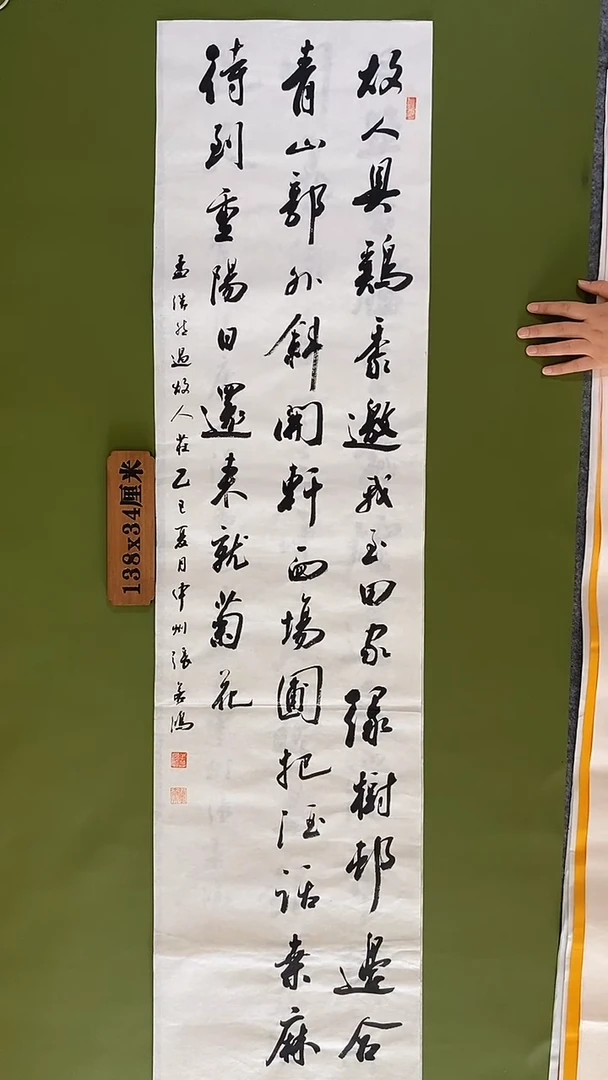 故人具鷄黍邀我至田家緑樹邨邊合
青山郭外斜開軒面場圃把酒話桑麻
待到重陽日還来就菊花
孟浩然過故人莊乙巳夏月中州張鴻
138x34厘米